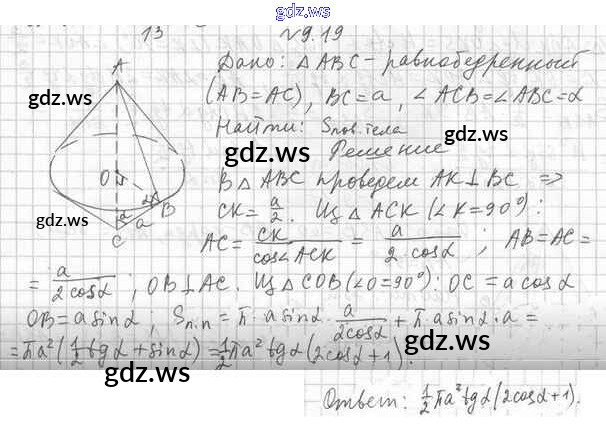 gdz.ws
13 №9.19
Дано: △ABC - равнобедренный
(AB=AC), BC=a, ∠ACB=∠ABC=α
Найти: Sпов.тела
Решение
В △ABC проведем AK⊥BC ⇒
CK = a/2. Из △ACK (∠K=90°):
AC = CK/cos∠ACK = a/(2 cosα); AB=AC=
= a/(2cosα), OB⊥AC. Из △COB (∠O=90°): OC = a cosα
OB = a sinα; Sп.п = π·a sinα · a/(2cosα) + π a sinα · a =
= πa²(1/2 tgα + sinα) = 1/2 πa² tgα (2cosα+1).
Ответ: 1/2 πa² tgα (2cosα+1).
A
O
B
C
2
2
a
gdz.ws
gdz.ws
gdz.ws
gdz.ws
gdz.ws
gdz.ws
gdz.ws
gdz.ws